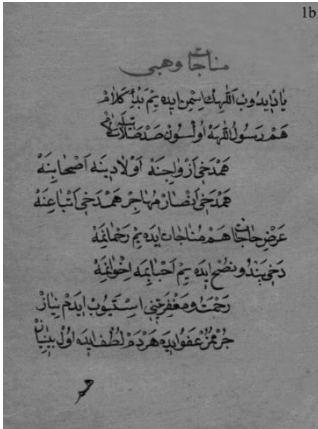 1b
مناجات وهبی
یاد ایدوب اللهك اسمن ایده‌یم بدأ كلام
هم رسول الله اولسون صد صلات
همدخی ازواجنه اولادینه اصحابنه
همدخی انصار مهاجر همدخی اتباعنه
عرض حاجات هم مناجات ایده‌یم رحمانمه
دخی پند و نصح ایده‌یم احبابمه اخوانمه
رحمت و مغفرتنی استیوب ایدم نیاز
جرممز عفو ایده هردم لطف ایده اول بی‌نیاز